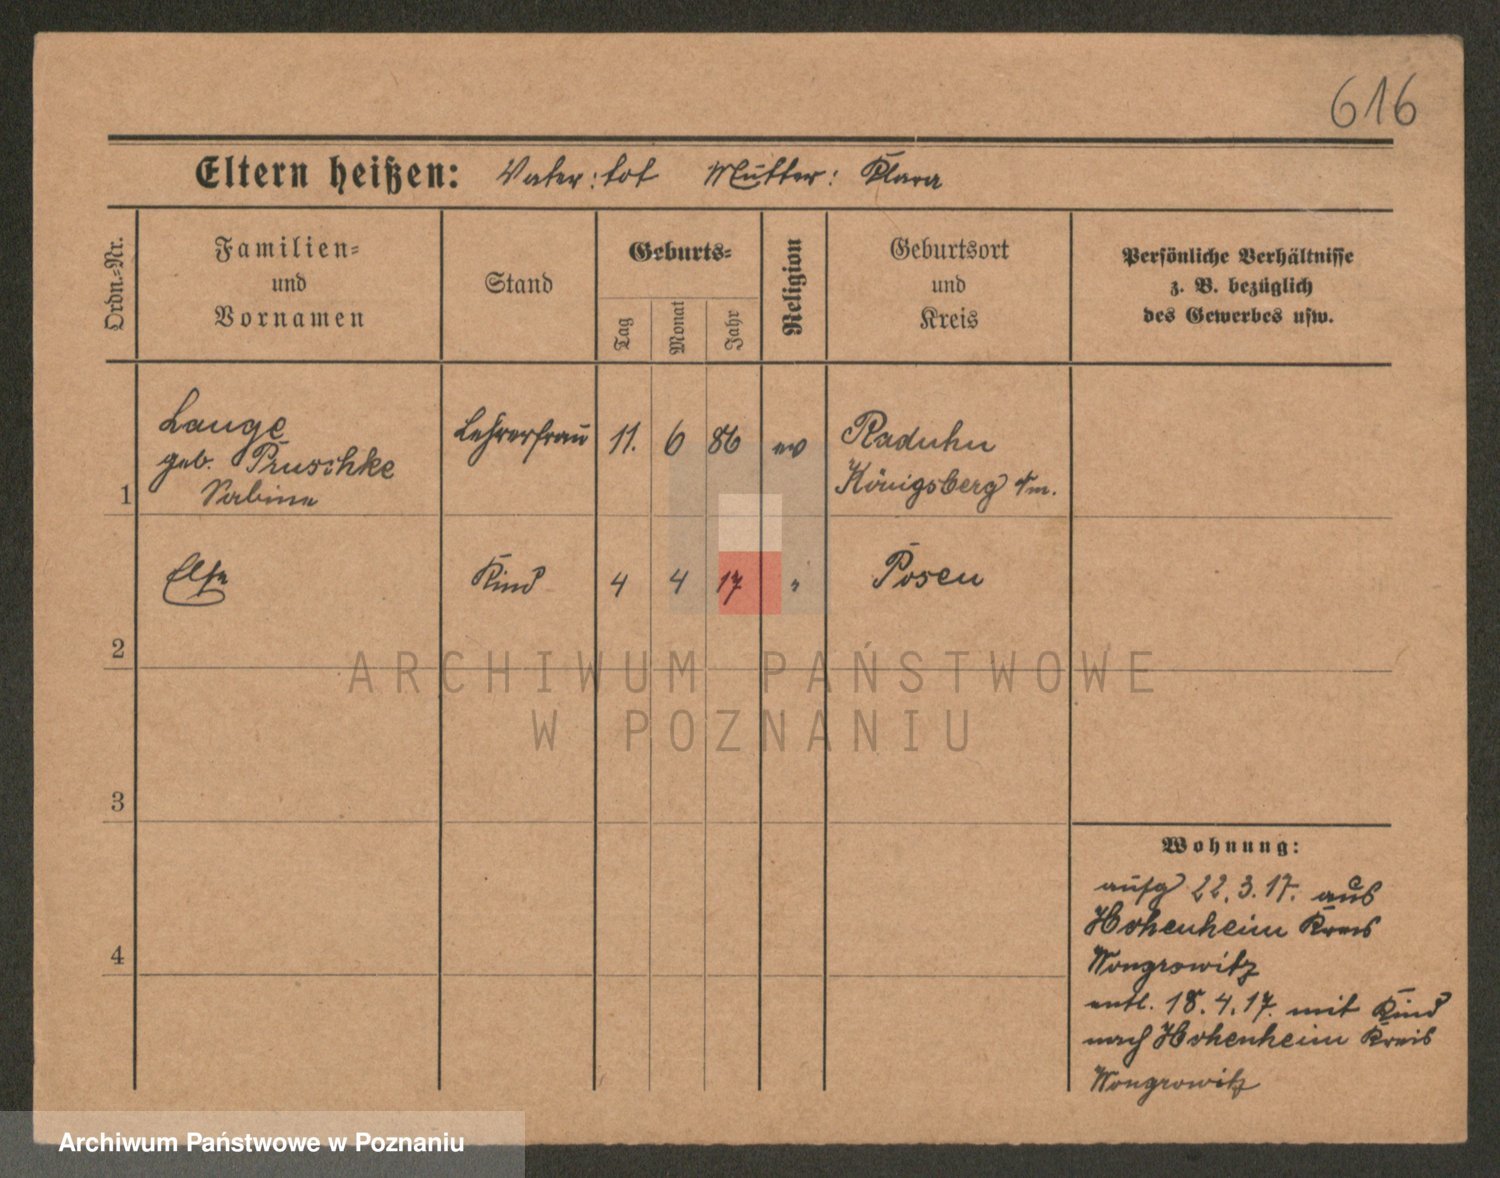 616
Eltern heißen: Vater: tot Mutter: Klara
Ordn.=Nr.
Familien=
und
Vornamen
Stand
Geburts=
Tag
Monat
Jahr
Religion
Geburtsort
und
Kreis
Persönliche Verhältnisse
z. B. bezüglich
des Gewerbes usw.
1
Lange
geb. Pruschke
Sabine
Lehrerfrau
11.
6
86
ev
Raduhn
Königsberg n/m.
2
Else
Kind
4
4
17
"
Posen
3
4
Wohnung:
aufg 22.3.17. aus
Hohenheim Kreis
Wongrowitz
entl. 18.4.17. mit Kind
nach Hohenheim Kreis
Wongrowitz
ARCHIWUM PAŃSTWOWE
W POZNANIU
Archiwum Państwowe w Poznaniu